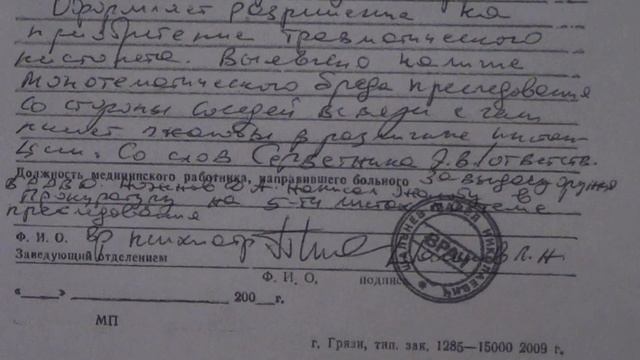 Оформляет разрешение на
приобретение травматического
пистолета. Выявлено наличие
монотематического бреда преследования
со стороны соседей в связи с чем
пишет жалобы в различные инстан-
ции. Со слов Серветника Э.В. (ответств.
Должность медицинского работника, направившего больного за выдачу оружия
в РОВД). написал жалобу в
Прокуратуру на 5-ти листах
преследования
Ф. И. О. Вр психиатр Л.Н.
Заведующий отделением
Ф. И. О. подпись
ВРАЧ
НИКОЛАЕВИЧ
«___» ____________ 200__г.
МП
г. Грязи, тип. зак. 1285—15000 2009 г.